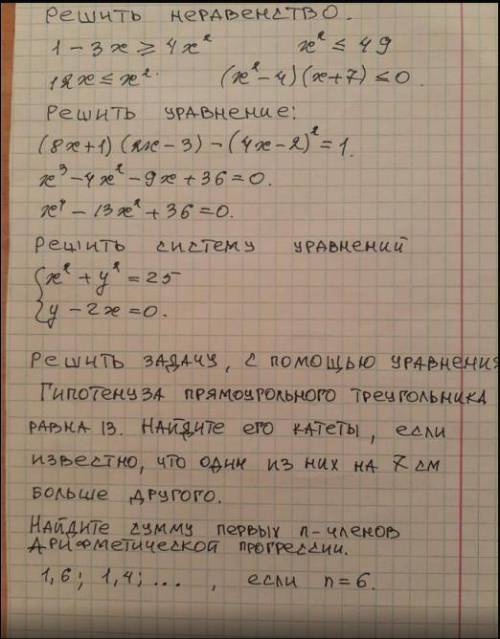 Решить неравенство.
1 - 3x ≥ 4x² x² ≤ 49
12x ≤ x². (x² - 4)(x + 7) ≤ 0.
Решить уравнение:
(8x+1)(2x-3) - (4x-2)² = 1.
x³ - 4x² - 9x + 36 = 0.
x⁴ - 13x² + 36 = 0.
Решить систему уравнений
{x² + y² = 25
{y - 2x = 0.
Решить задачу, с помощью уравнения
Гипотенуза прямоугольного треугольника
равна 13. Найдите его катеты, если
известно, что один из них на 7 см
больше другого.
Найдите сумму первых n-членов
Арифметической прогрессии.
1,6; 1,4; ... , если n = 6.